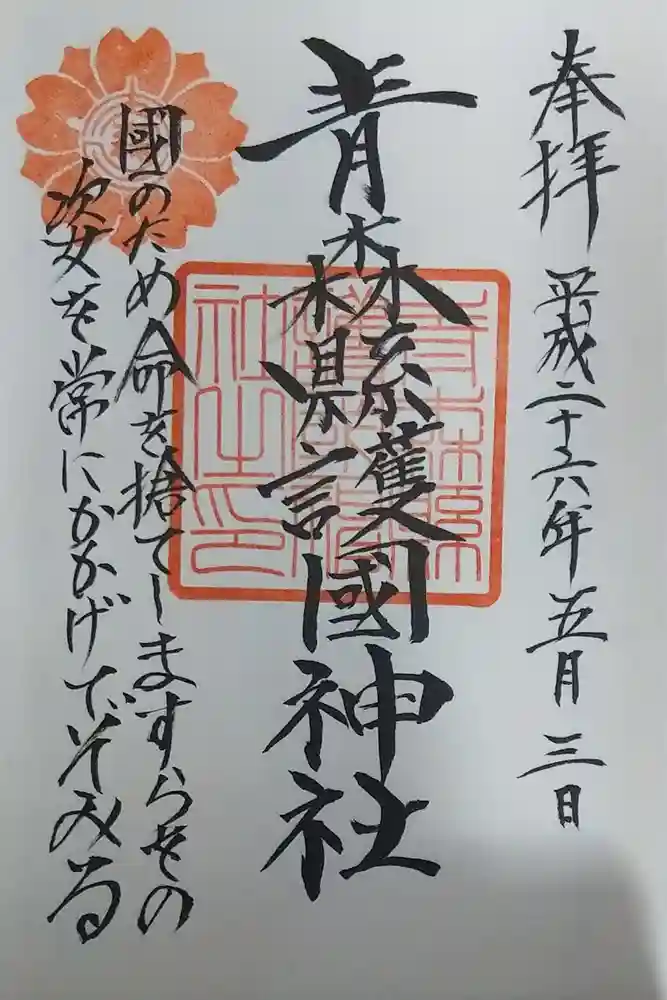 奉拝 平成二十六年五月三日
青森縣護國神社
國のため命を捨てしますらをの
姿を常にかかげてぞみる
青森縣護國神社之印